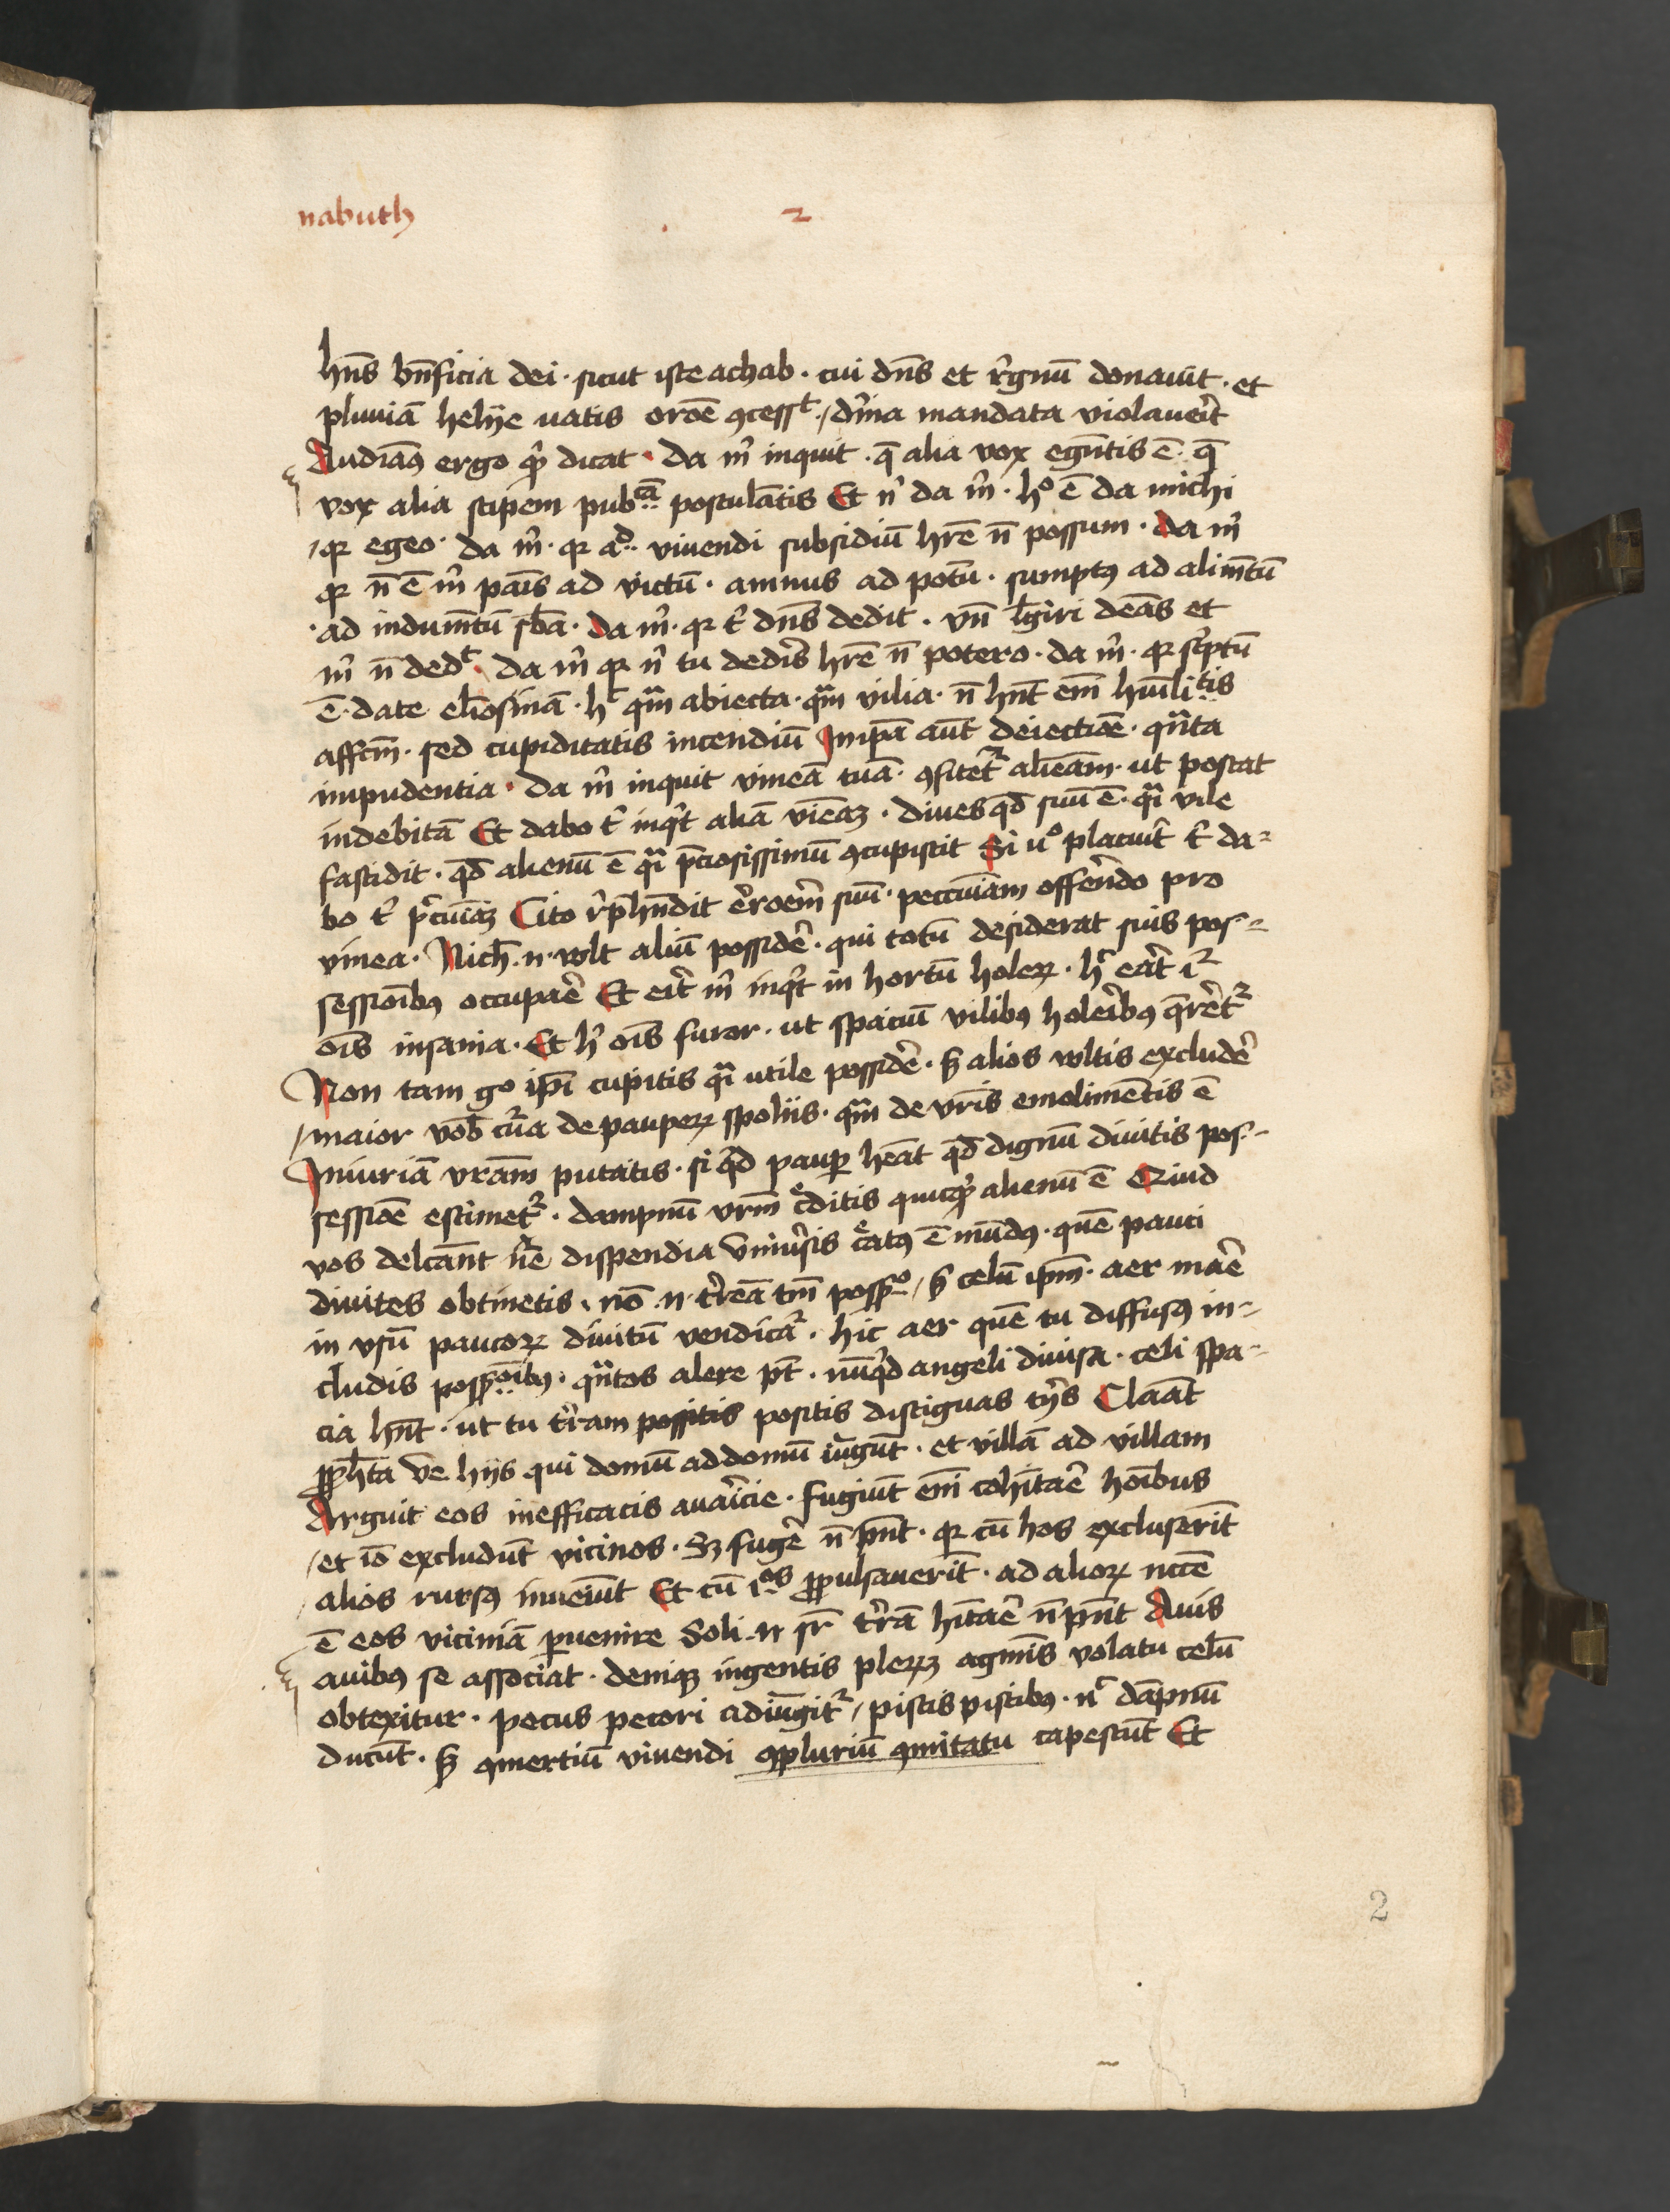 nabuth 2
hn̄s bn̄ficia dei · sicut iste achab · cui dn̄s et r̉gnū donauit · et
pluuiā helije uatis ordē ꝯcessᵗ · / diīna mandata violauer̄t
Audiaꝰ ergo qͥd dicat · Da mͥ inquit · q̄ alia vox egn̄tis ē · q̄
vox alia stipem pubᶜā postulātis Et nͥ da mͥ · hº ē da michi
/ qꝛ egeo · da mͥ · qꝛ aᵈ vivendi subsidiū hr̄e n̄ possum · da mͥ
qꝛ n̄ ē mͥ pāis ad victū · amnus ad potū · sumptꝰ ad alim̄tū
· ad indum̄tū sb̄a · da mͥ · qꝛ tͥ dn̄s dedit · vn̄ l̄giri deās et
mͥ n̄ dedᵗ · da mͥ qꝛ nͥ tu dedis̉ hr̄e n̄ potero · da mͥ · qꝛ sc̉ptū
ē · date eliōsinā · hᶜ qͣm abiecta · qͣm vilia · n̄ hn̄t em̄ hūilitᵗis
affcm̄ · sed cupiditatis incendiū In ip̄a aūt deiectiōe · qͣnta
impudentia · Da mͥ inquit vineā tuā · ꝯfitetᷣ alieām · ut poscat
indebitā Et dabo tͥ inqͥt aliā vieā · diues qd̄ suū ē · qͣi vile
fastidit · qd̄ alienū ē qͣi p̄ciosissimū ꝯcupiscit Si uº placuit̉ tͥ da⸗
bo tͥ peͨuiā Cito r̉p̄hn̄dit er̉roem̄ suū · peccuiam offer̉ndo pro
vinea · Nich̄ · n · vult aliū possider̉ · qui totū desiderat suis pos⸗
sessiōibꝰ occupar̉e Et eit̉ mͥ inqͥt in hortū holeꝝ · hᶜ eat̉ iᷣ
oīs insania · Et hͥ oīs furor · ut spaciū vilibꝰ holeīībꝰ q̄rer̉etᷣ
Non tam go ip̄i cupitis qͣi utile possider̉ · s̄ alios vultis excluder̉
/ maior vob̄ cūa de paupeꝝ spoliis · qͣm de vr̄is emolimētis ē
Iniuriā vrām putatis · si qͥd pauꝑ heāt qd̄ dignū diuitis pos⸗
sessiōe estimetᷣ · dampnū vrm̄ cͤditis quicqͥd alienū ē Qͥid
vos delcān̄t nͣe dispendia vniūsis cͤatꝰ ē mūdꝰ · quē pauci
diuites obtinetis · nō · n · tr̉eā tm̄ possº / s̄ celū ip̄m · aer marē
in vsū paucoꝝ diuitū vendicaᷣ · hic aer quē tu diffusꝰ in⸗
cludis possōībꝰ · qͣntos alere pt̄ · nūqͥd angeli diuisa · celi spa⸗
cia hn̄t · ut tu tr̉ram possitis positis distiguas tȳs Claāt
ꝓph̄ta ve hijs qui domū ad domū iūgūt · et villā ad villam
Arguit eos inefficacis auaricie · fugiūt em̄ cohīntar̉e hoībus
/ et iō excludūt vicinos · Sꝫ fuger̉ n̄ pn̄t · qꝛ cū hos excluserīt
/ alios rursꝰ inueiūt Et cū iᵒˢ ꝓpulsauerīt · ad alioꝝ nc̄cē
ē eos viciniā ꝑuenire Soli · n sr̄ tr̉rā hītar̉e n̄ pn̄t Auis
auibꝰ se associat · denique ingentis pleꝝꝫ agmīs volatu celū
obtexitur · pecus pecori adiūgitᷣ / piscis piscibꝰ · nᶜ dāpnū
ducūt · s̄ ꝯmertiū viuendi ꝯpluriū ꝯmitatu capescūt Et
2